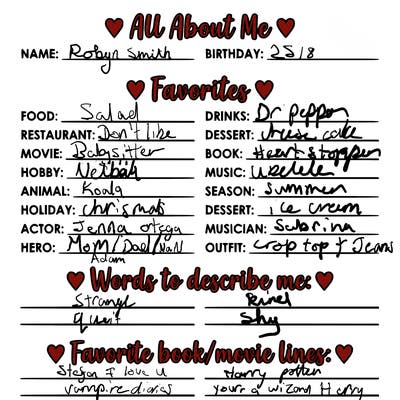 All About Me
NAME: Robyn Smith BIRTHDAY: 25/8
Favorites
FOOD: Salad DRINKS: Dr pepper
RESTAURANT: Don't like DESSERT: cheese cake
MOVIE: Babysitter BOOK: Heartstopper
HOBBY: Netball MUSIC:
ANIMAL: Koala SEASON: summer
HOLIDAY: christmas DESSERT: ice cream
ACTOR: Jenna ortega MUSICIAN: Sabrina
HERO: Mom/Dad/Nan OUTFIT: crop top + Jeans
Adam
Words to describe me:
Strange Kind
quiet Shy
Favorite book/movie lines:
Stefan I love u Harry potter
vampire diaries your a wizard Harry